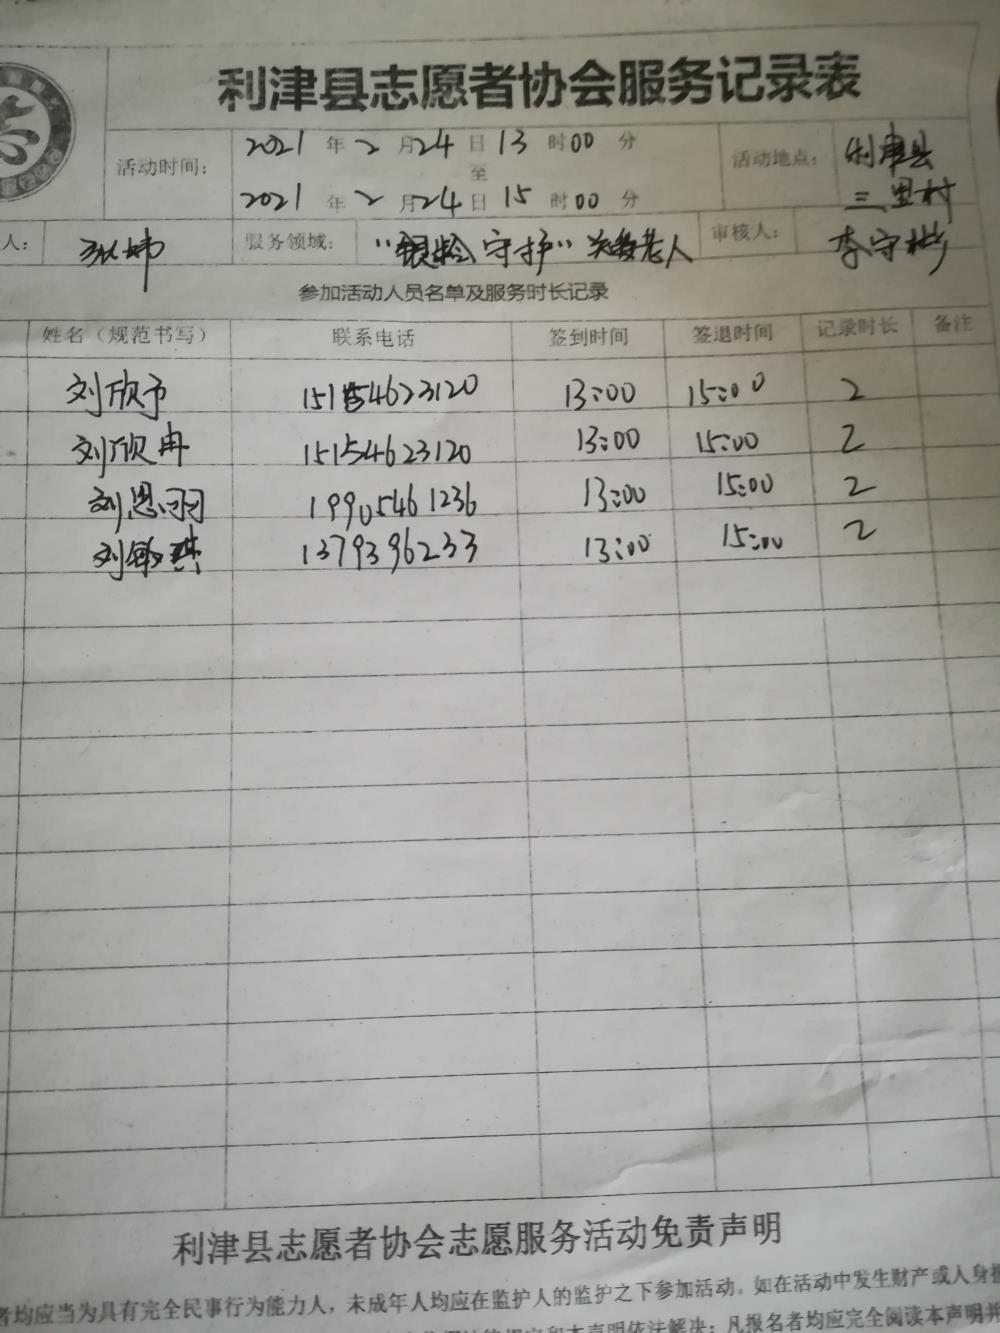 志
利津县志愿者协会服务记录表
活动时间： 2021 年 2 月 24 日 13 时 00 分
至
2021 年 2 月 24 日 15 时 00 分
活动地点： 利津县
三里村
人： 服务领域： “银龄守护”关爱老人 审核人： 李守彬
参加活动人员名单及服务时长记录
姓名（规范书写） 联系电话 签到时间 签退时间 记录时长 备注
刘欣予 15154623120 13:00 15:00 2
刘欣冉 15154623120 13:00 15:00 2
刘恩羽 19905461236 13:00 15:00 2
刘 1379396233 13:00 15:00 2
利津县志愿者协会志愿服务活动免责声明
者均应当为具有完全民事行为能力人，未成年人均应在监护人的监护之下参加活动。如在活动中发生财产或人身损
和本声明依法解决；凡报名者均应完全阅读本声明并